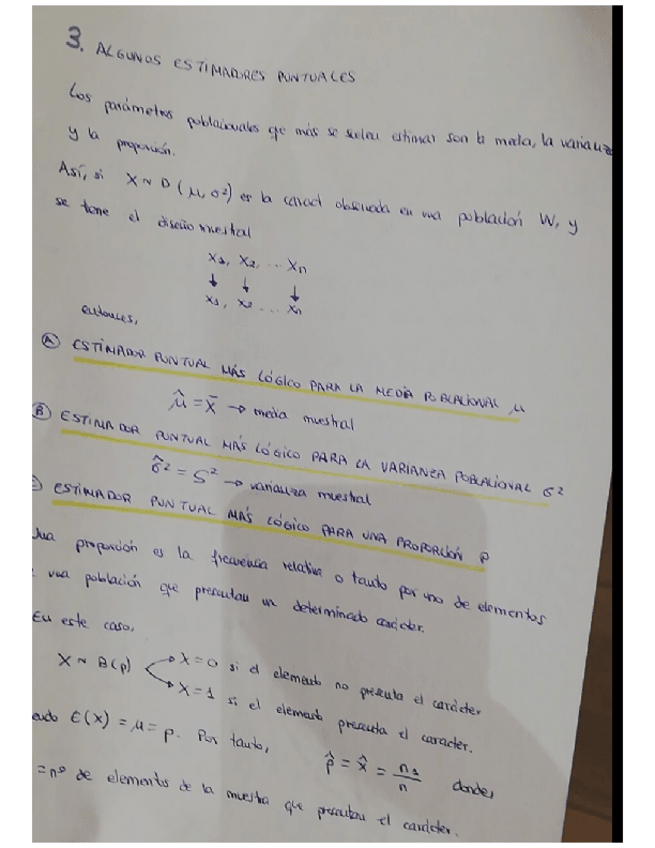 3. ALGUNOS ESTIMADORES PUNTUALES
Los parámetros poblacionales que más se suelen estimar son la media, la varianza
y la proporción.
Así, si X ~ D (μ, σ²) es la caract observada en una población W, y
se tiene el diseño muestral
X₁, X₂, ... Xn
↓ ↓ ↓
x₁, x₂ ... xn
entonces,
A ESTIMADOR PUNTUAL MÁS LÓGICO PARA LA MEDIA POBLACIONAL μ
μ̂ = X̄ → media muestral
B) ESTIMADOR PUNTUAL MÁS LÓGICO PARA LA VARIANZA POBLACIONAL σ²
σ̂² = S² → varianza muestral
) ESTIMADOR PUNTUAL MÁS LÓGICO PARA UNA PROPORCIÓN P
Una proporción es la frecuencia relativa o tanto por uno de elementos
una población que presentan un determinado carácter.
En este caso,
X ~ B(p) → X = 0 si el elemento no presenta el carácter
→ X = 1 si el elemento presenta el caracter.
endo E(X) = μ = p. Por tanto, p̂ = x̂ = n₁/n donde,
= nº de elementos de la muestra que presentan el carácter.